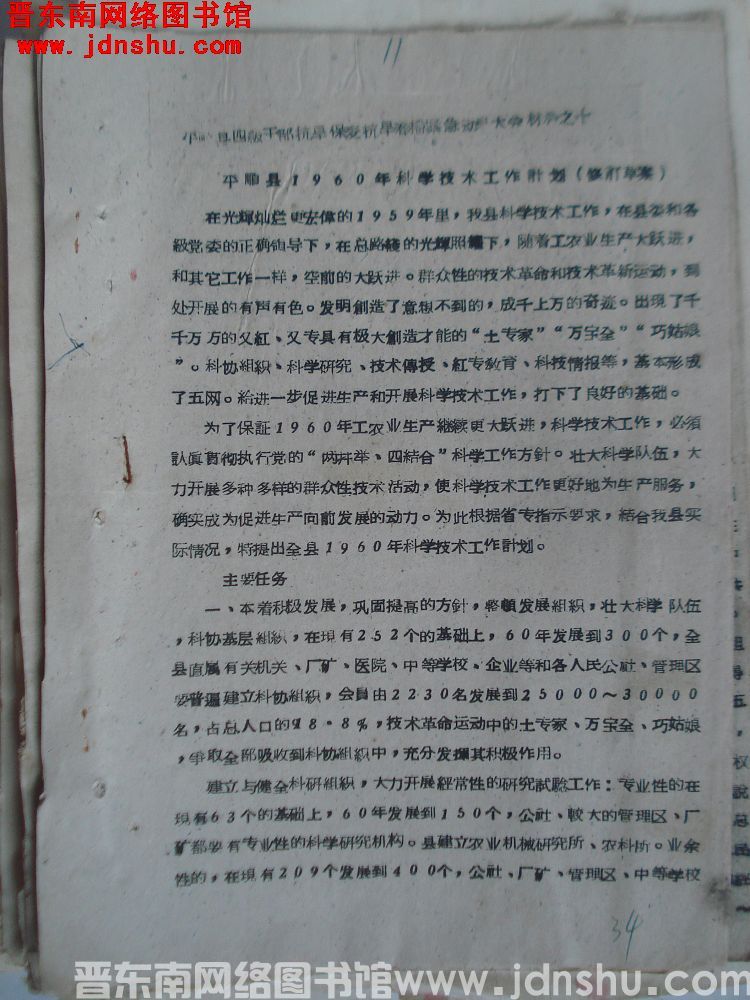 晋东南网络图书馆
www.jdnshu.com
11
平 县四级干部抗旱保麦抗旱 动 大会材料之十
平順县1960年科学技术工作計划（修訂草案）
在光輝灿烂更宏偉的1959年里，我县科学技术工作，在县委和各
級党委的正确領导下，在总路綫的光輝照耀下，随着工农业生产大跃进，
和其它工作一样，空前的大跃进。群众性的技术革命和技术革新运动，到
处开展的有声有色。发明創造了意想不到的，成千上万的奇迹。出現了千
千万万的又紅、又专具有极大創造才能的“土专家”“万宝全”“巧姑娘
”。科协組织、科学研究、技术傳授、紅专教育、科技情报等，基本形成
了五网。給进一步促进生产和开展科学技术工作，打下了良好的基础。
为了保証1960年工农业生产継续更大跃进，科学技术工作，必須
認眞貫彻执行党的“两并举、四結合”科学工作方針。壮大科学队伍，大
力开展多种多样的群众性技术活动，使科学技术工作更好地为生产服务，
确实成为促进生产向前发展的动力。为此根据省专指示要求，結合我县实
际情况，特提出全县1960年科学技术工作計划。
主要任务
一、本着积极发展，巩固提高的方針，整頓发展組织，壮大科学队伍
，科协基层組织，在現有252个的基础上，60年发展到300个，全
县直属有关机关、厂矿、医院、中等学校、企业等和各人民公社、管理区
要普遍建立科协組织，会員由2230名发展到25000～30000
名，占总人口的18·8%，技术革命运动中的土专家、万宝全、巧姑娘
，争取全部吸收到科协組织中，充分发揮其积极作用。
建立与健全科研組织，大力开展經常性的研究試驗工作：专业性的在
現有63个的基础上，60年发展到150个，公社、較大的管理区、厂
矿都要有专业性的科学研究机构。县建立农业机械研究所、农科所。业余
性的，在現有209个发展到400个，公社、厂矿、管理区、中等学校
34
晋东南网络图书馆www.jdnshu.com